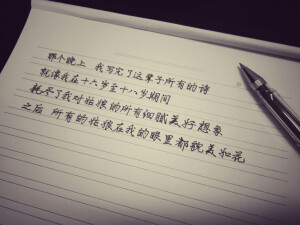 那个晚上 我写完了这辈子所有的诗
就像我在十六岁至十八岁期间
耗尽了我对姑娘的所有细腻美好想象
之后 所有的姑娘在我的眼里都貌美如花